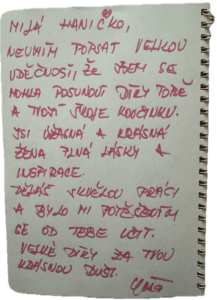 MILÁ HANIČKO,
NEUMÍM POPSAT VELIKOU
VDĚČNOST, ŽE JSEM SE
MOHLA POSUNOUT DÍKY TOBĚ
A TVOJÍ ŠKOLE KOUČINKU.
JSI ÚŽASNÁ A KRÁSNÁ
ŽENA PLNÁ LÁSKY A
INSPIRACE.
DĚLÁŠ SKVĚLOU PRÁCI
A BYLO MI POTĚŠENÍM
SE OD TEBE UČIT.
VELKÉ DÍKY ZA TVOU
KRÁSNOU DUŠI.